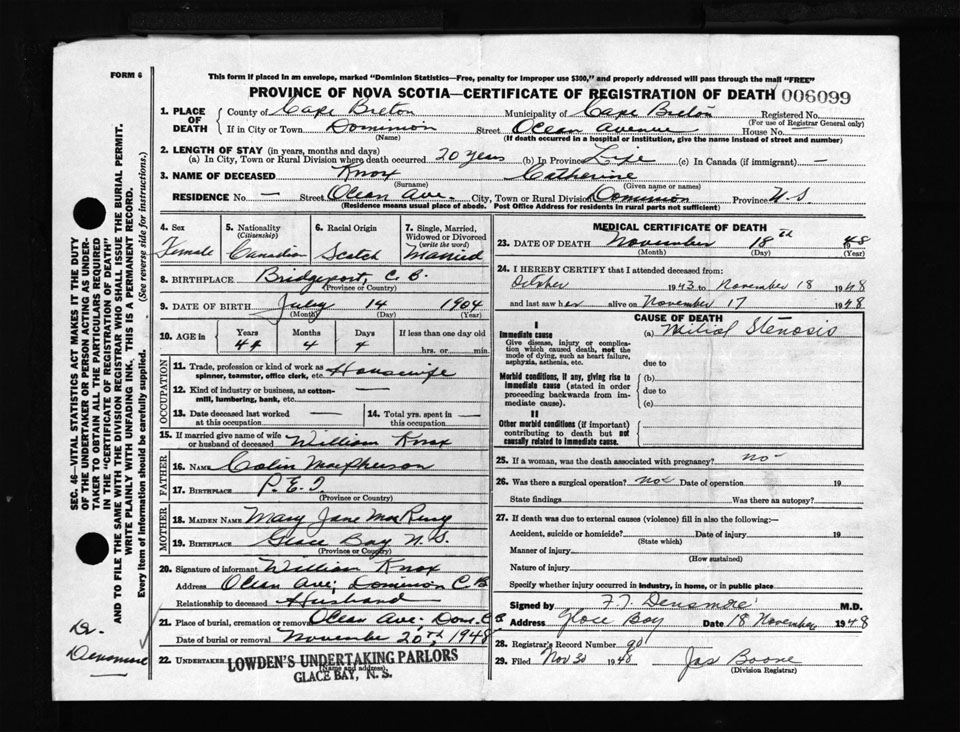 FORM 6
This form if placed in an envelope, marked "Dominion Statistics—Free, penalty for improper use $300," and properly addressed will pass through the mail "FREE"
PROVINCE OF NOVA SCOTIA—CERTIFICATE OF REGISTRATION OF DEATH 006099
1. PLACE OF DEATH County of Cape Breton Municipality of Cape Breton Registered No.
(For use of Registrar General only)
If in City or Town Dominion Street Ocean Avenue House No. —
(Name) (If death occurred in a hospital or institution, give the name instead of street and number)
2. LENGTH OF STAY (in years, months and days)
(a) In City, Town or Rural Division where death occurred 20 years (b) In Province Life (c) In Canada (if immigrant) —
3. NAME OF DECEASED Knox Catherine
(Surname) (Given name or names)
RESIDENCE No. — Street Ocean Ave. City, Town or Rural Division Dominion Province N.S
(Residence means usual place of abode. Post Office Address for residents in rural parts not sufficient)
4. Sex Female
5. Nationality (Citizenship) Canadian
6. Racial Origin Scotch
7. Single, Married, Widowed or Divorced (write the word) Married
8. BIRTHPLACE Bridgeport, C. B.
(Province or Country)
9. DATE OF BIRTH July 14 1904
(Month) (Day) (Year)
10. AGE in Years Months Days If less than one day old
44 4 4 hrs. or min.
OCCUPATION
11. Trade, profession or kind of work as spinner, teamster, office clerk, etc. Housewife
12. Kind of industry or business, as cotton-mill, lumbering, bank, etc. —
13. Date deceased last worked at this occupation — 14. Total yrs. spent in this occupation —
15. If married give name of wife or husband of deceased William Knox
FATHER
16. NAME Colin MacPherson
17. BIRTHPLACE P.E.I
(Province or Country)
MOTHER
18. MAIDEN NAME Mary Jane
19. BIRTHPLACE Glace Bay N.S.
(Province or Country)
20. Signature of informant William Knox
Address Ocean Ave: Dominion C B
Relationship to deceased Husband
21. Place of burial, cremation or removal Ocean Ave: Dom. C B.
Date of burial or removal November 20th, 1948
22. UNDERTAKER LOWDEN'S UNDERTAKING PARLORS
(Name and address)
GLACE BAY, N. S.
MEDICAL CERTIFICATE OF DEATH
23. DATE OF DEATH November 18th 1948
(Month) (Day) (Year)
24. I HEREBY CERTIFY that I attended deceased from:
October 1943 to November 18 1948
and last saw her alive on November 17 1948
CAUSE OF DEATH
I
Immediate cause (a) Mitral Stenosis
Give disease, injury or complication which caused death, not the mode of dying, such as heart failure, asphyxia, asthenia, etc.
due to
Morbid conditions, if any, giving rise to immediate cause (stated in order proceeding backwards from immediate cause).
(b)
due to
(c)
II
Other morbid conditions (if important) contributing to death but not causally related to immediate cause.
25. If a woman, was the death associated with pregnancy? no
26. Was there a surgical operation? no Date of operation 19
State findings Was there an autopsy?
27. If death was due to external causes (violence) fill in also the following:—
Accident, suicide or homicide? Date of injury 19
(State which)
Manner of injury
(How sustained)
Nature of injury
Specify whether injury occurred in industry, in home, or in public place
Signed by F. T. Densmore M.D.
Address Glace Bay Date 18 November 1948
28. Registrar's Record Number 90
29. Filed Nov 30 1948 Jas Boone
(Division Registrar)
SEC. 46—VITAL STATISTICS ACT MAKES IT THE DUTY
OF THE UNDERTAKER OR PERSON ACTING AS UNDER-
TAKER TO OBTAIN ALL THE PARTICULARS REQUIRED
IN THE "CERTIFICATE OF REGISTRATION OF DEATH"
AND TO FILE THE SAME WITH THE DIVISION REGISTRAR WHO SHALL ISSUE THE BURIAL PERMIT.
WRITE PLAINLY WITH UNFADING INK. THIS IS A PERMANENT RECORD.
Every item of information should be carefully supplied. (See reverse side for instructions.)
Dr.
Densmore